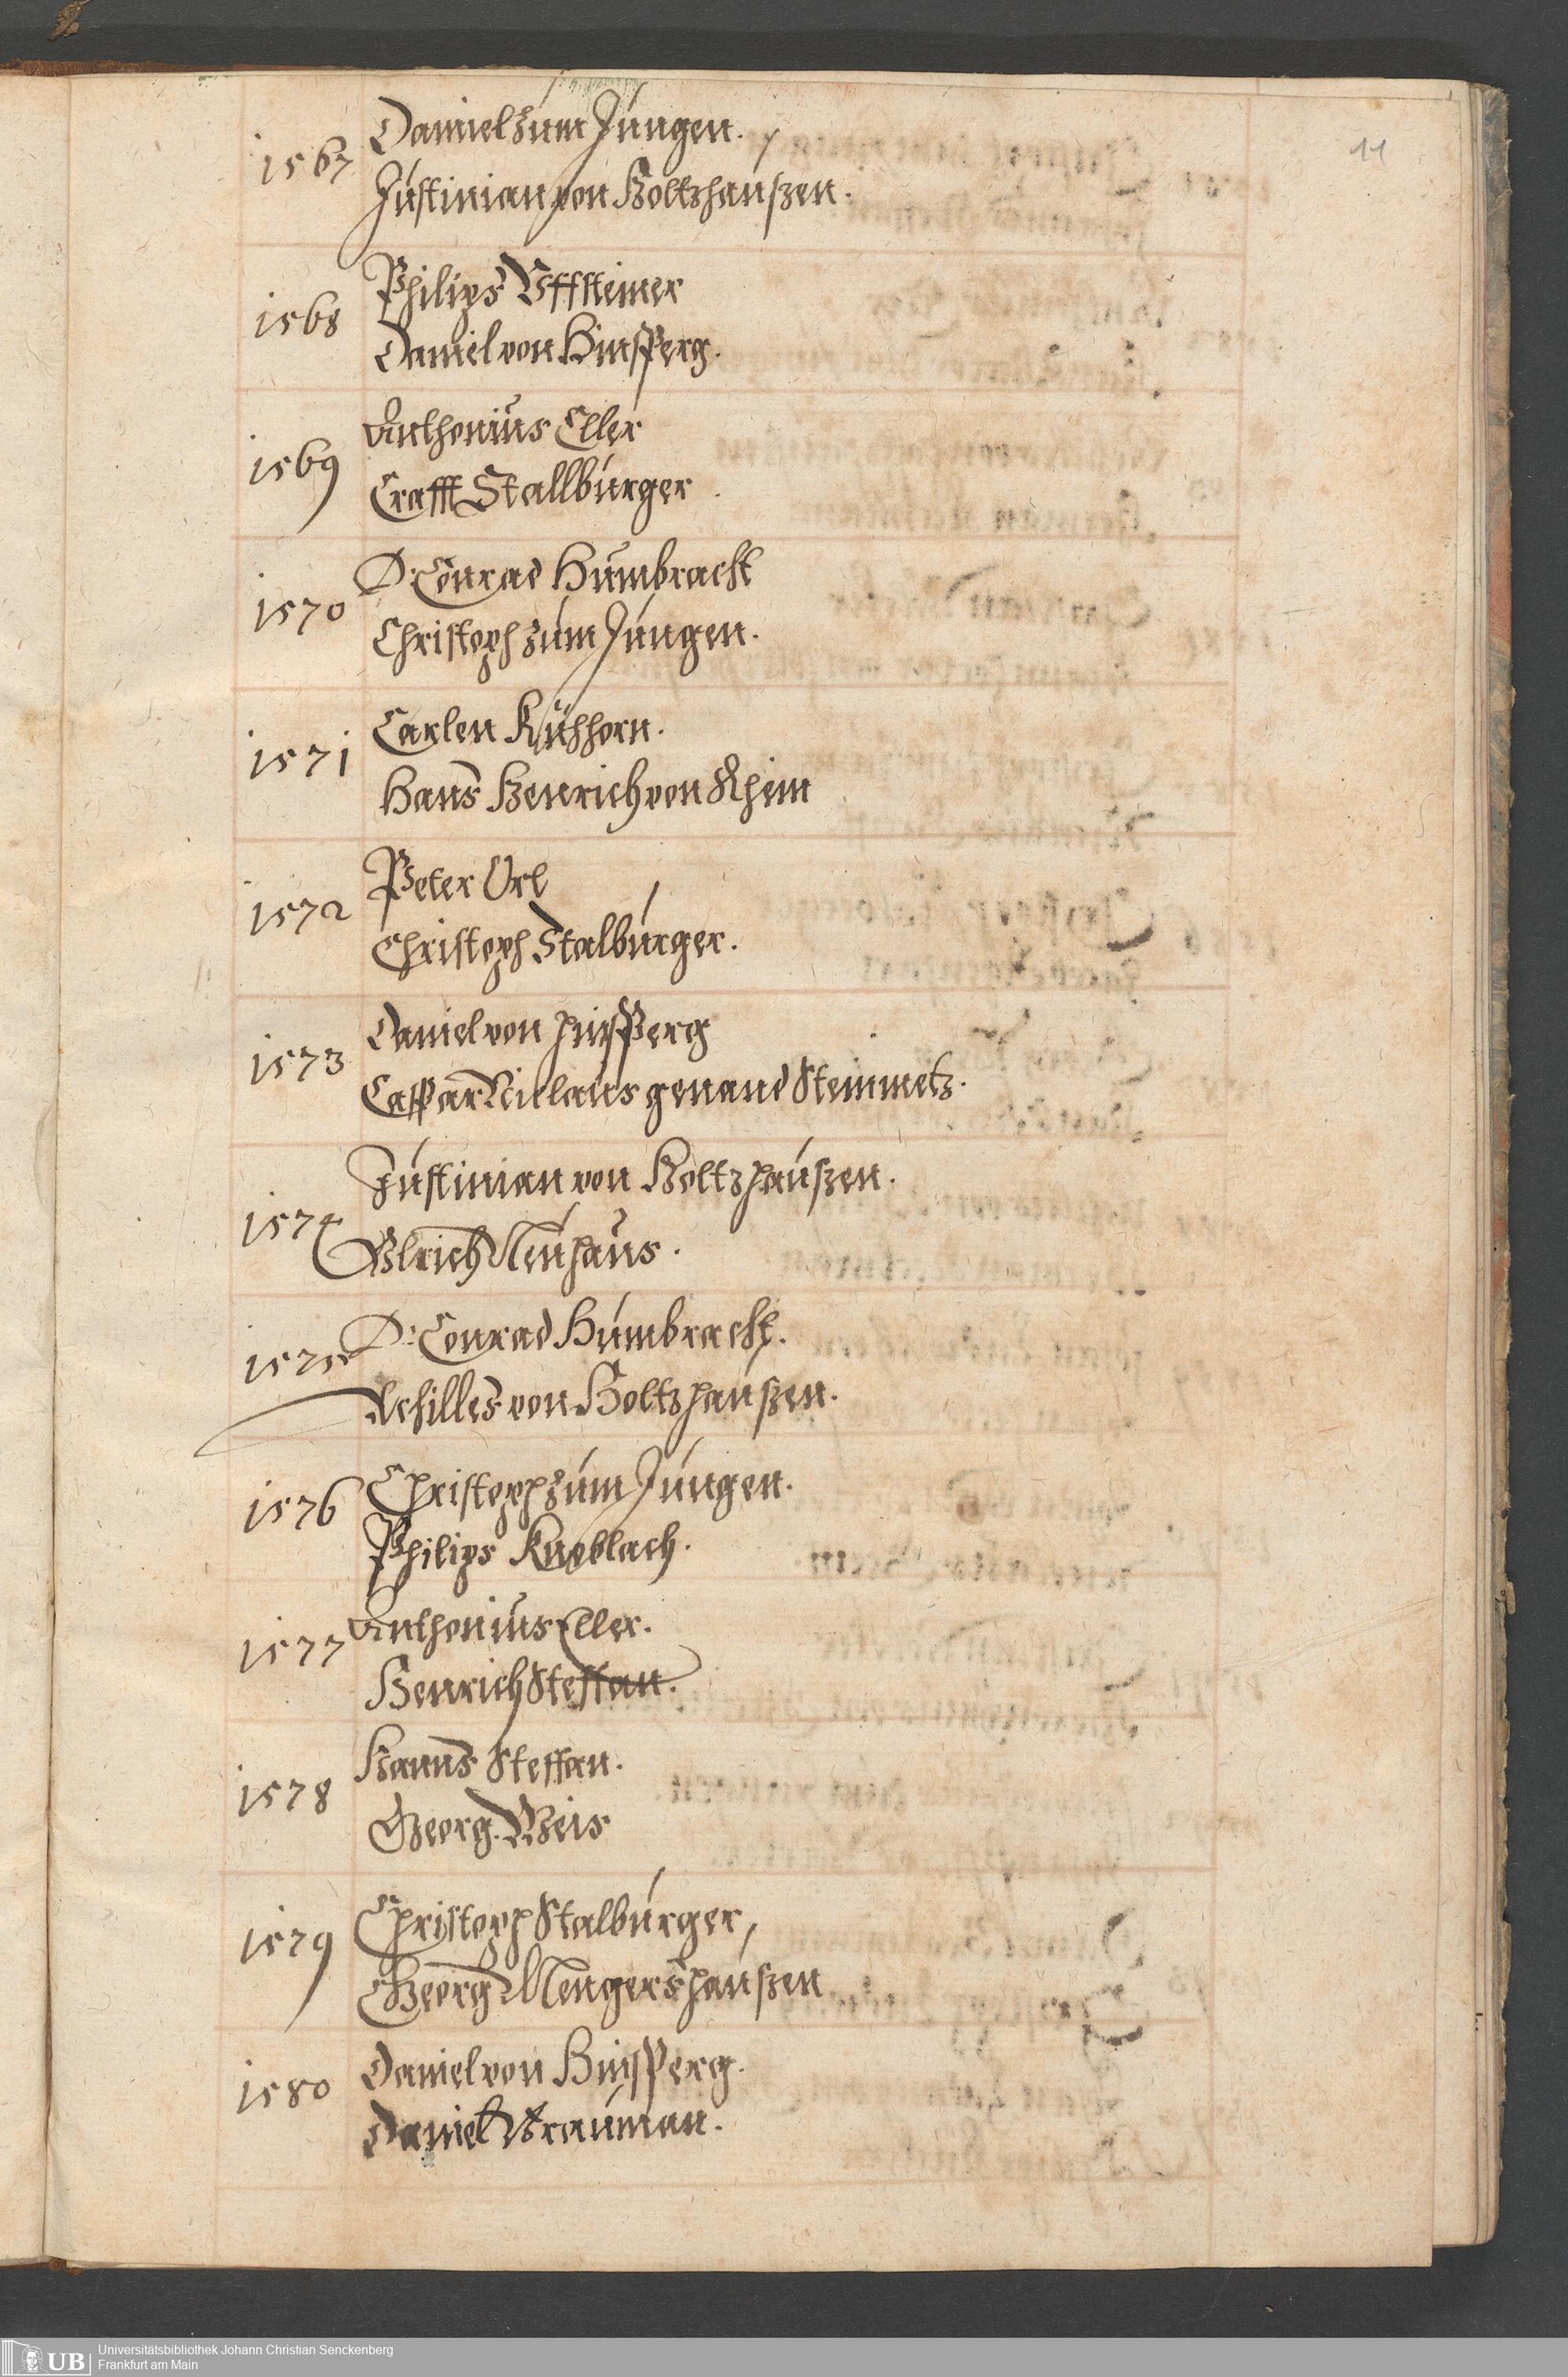 11
1567
Daniel zum Jungen.
Justinian von Holtzhaußen.
1568
Philips Vffsteiner
Daniel von Hinsperg.
1569
Anthonius Eller
Crafft Stallburger
1570
D. Conrad Humbracht
Christoph zum Jungen.
1571
Carlen Kühhorn.
Hans Henrich von Rhein
1572
Peter Ort
Christoph Stalburger.
1573
Daniel von Hinsperg
Caspar Niclaus genand Steinmetz.
1574
Justinian von Holtzhaußen.
Vlrich Neuhaus.
1575
D. Conrad Humbracht.
Achilles von Holtzhaußen.
1576
Christoph zum Jungen.
Philips Knoblach.
1577
Anthonius Eller.
Henrich Steffan.
1578
Hanns Steffan.
Georg Weis
1579
Christoph Stalburger,
Georg Mengershaußen
1580
Daniel von Hinsperg.
Daniel Brauman.
UB
Universitätsbibliothek Johann Christian Senckenberg
Frankfurt am Main